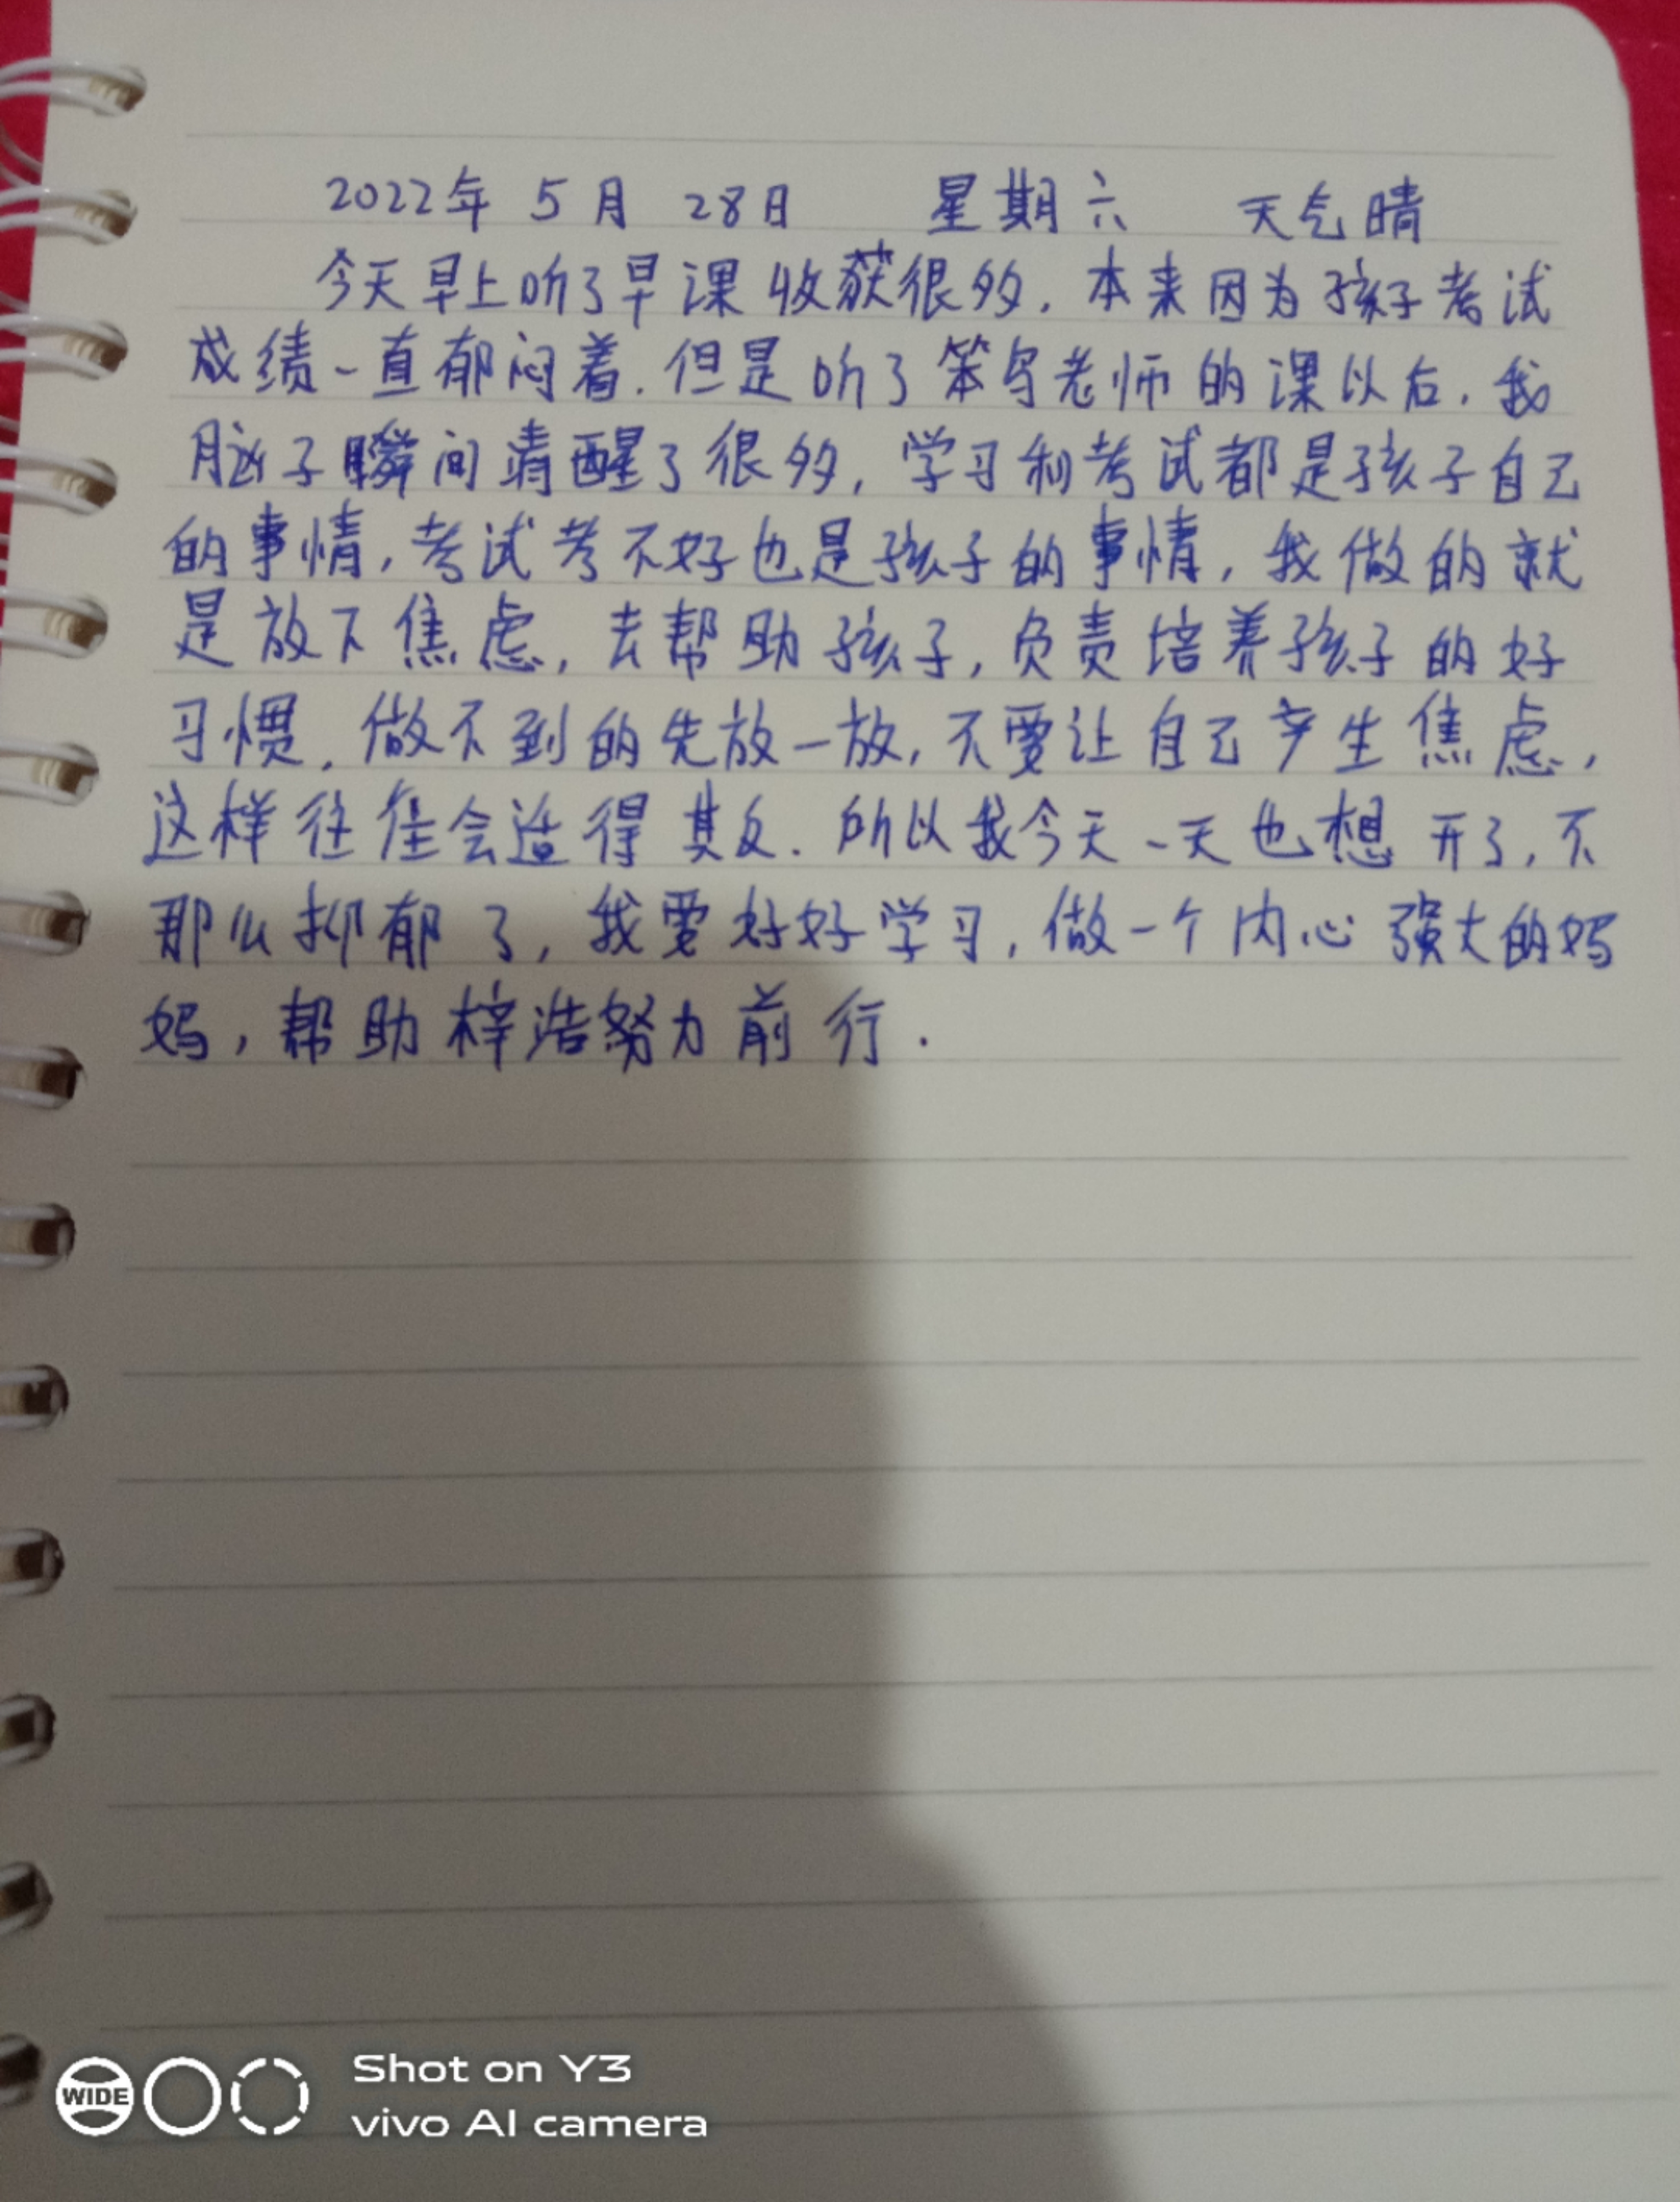 2022年 5月 28日 星期六 天气晴
今天早上听了早课收获很多.本来因为孩子考试
成绩一直郁闷着.但是听了笨鸟老师的课以后.我
脑子瞬间清醒了很多,学习和考试都是孩子自己
的事情,考试考不好也是孩子的事情,我做的就
是放下焦虑,去帮助孩子,负责培养孩子的好
习惯.做不到的先放一放,不要让自己产生焦虑,
这样往往会适得其反.所以我今天一天也想开了,不
那么抑郁了,我要好好学习,做一个内心强大的妈
妈,帮助梓浩努力前行.
WIDE
Shot on Y3
vivo AI camera